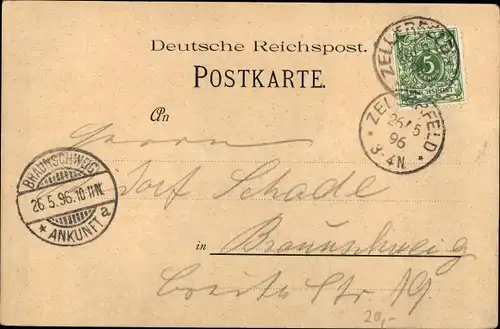 Deutsche Reichspost.
POSTKARTE.
An
Herrn
Schade
in Braunschweig
Breite Str 19
20,-
5
ZELLERFELD
ZELLERFELD
26/5
96
3-4N.
BRAUNSCHWEIG
26.5.96.10-11N.
ANKUNFT a